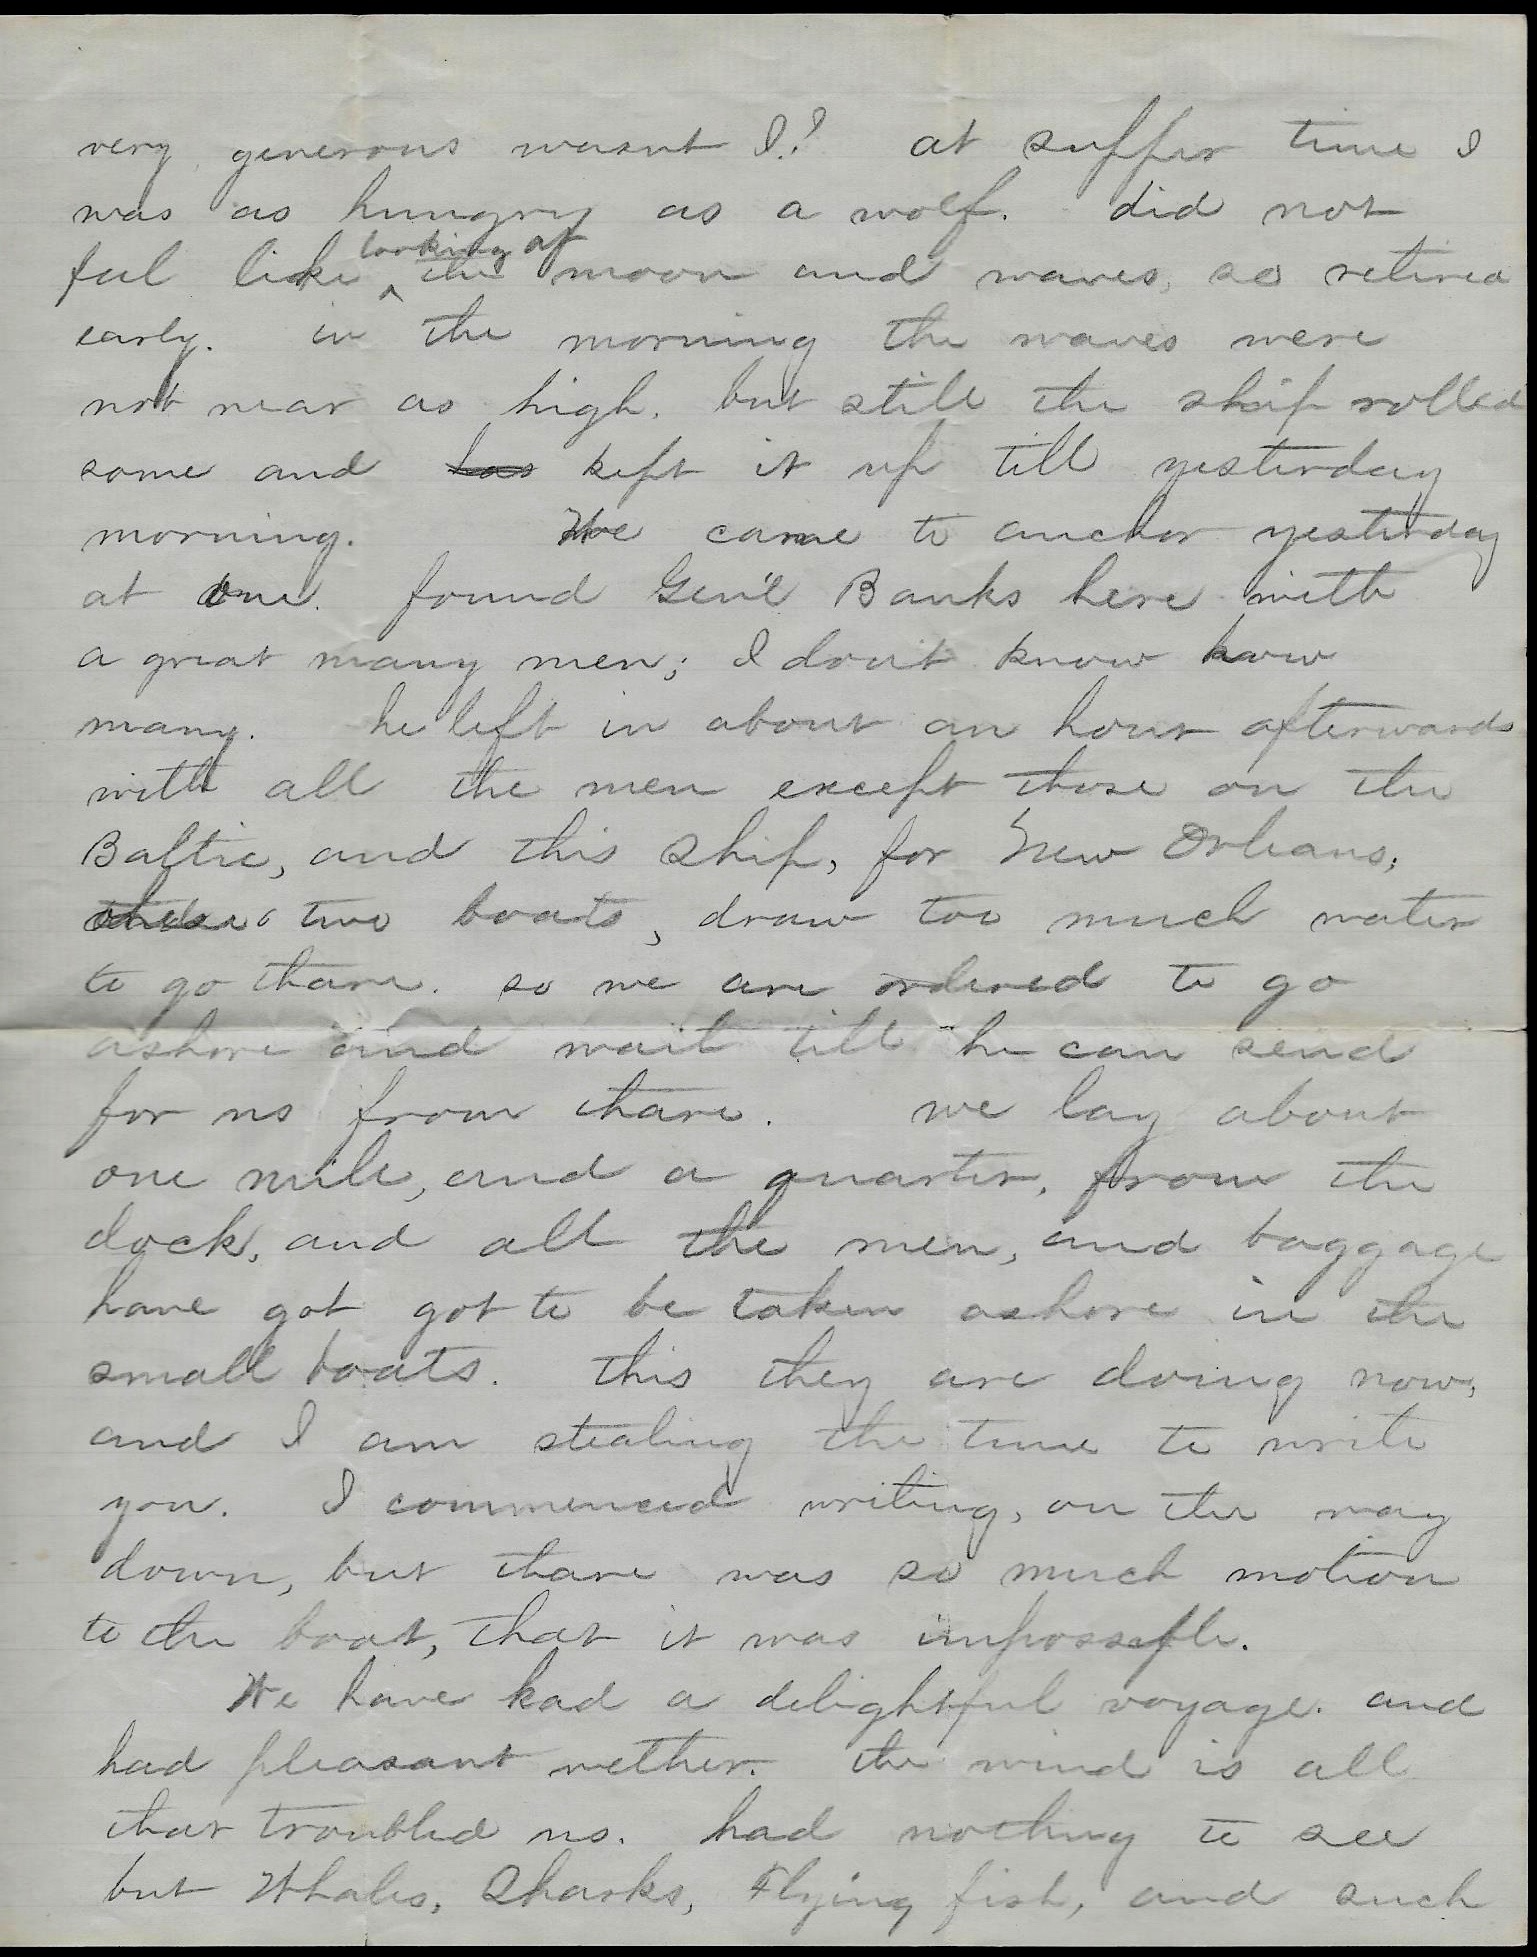 very generous wasnt I.? at supper time I
was as hungry as a wolf. did not
feel like looking at the moon and waves, so retired
early. in the morning the waves were
not near as high, but still the ship rolled
some and has kept it up till yesterday
morning. We came to anchor yesterday
at one. found Gen'l Banks here with
a great many men; I don't know how
many. he left in about an hour afterwards
with all the men except those on the
Baltic, and this ship, for New Orleans,
these two boats, draw too much water
to go thare. so we are ordered to go
ashore and wait till he can send
for us from thare. we lay about
one mile, and a quarter, from the
dock, and all the men, and baggage
have got got to be taken ashore in the
small boats. this they are doing now,
and I am stealing the time to write
you. I commenced writing, on the way
down, but thare was so much motion
to the boat, that it was impossible.
We have had a delightful voyage. and
had pleasant wether. the wind is all
that troubled us. had nothing to see
but Whales, Sharks, Flying fish, and such